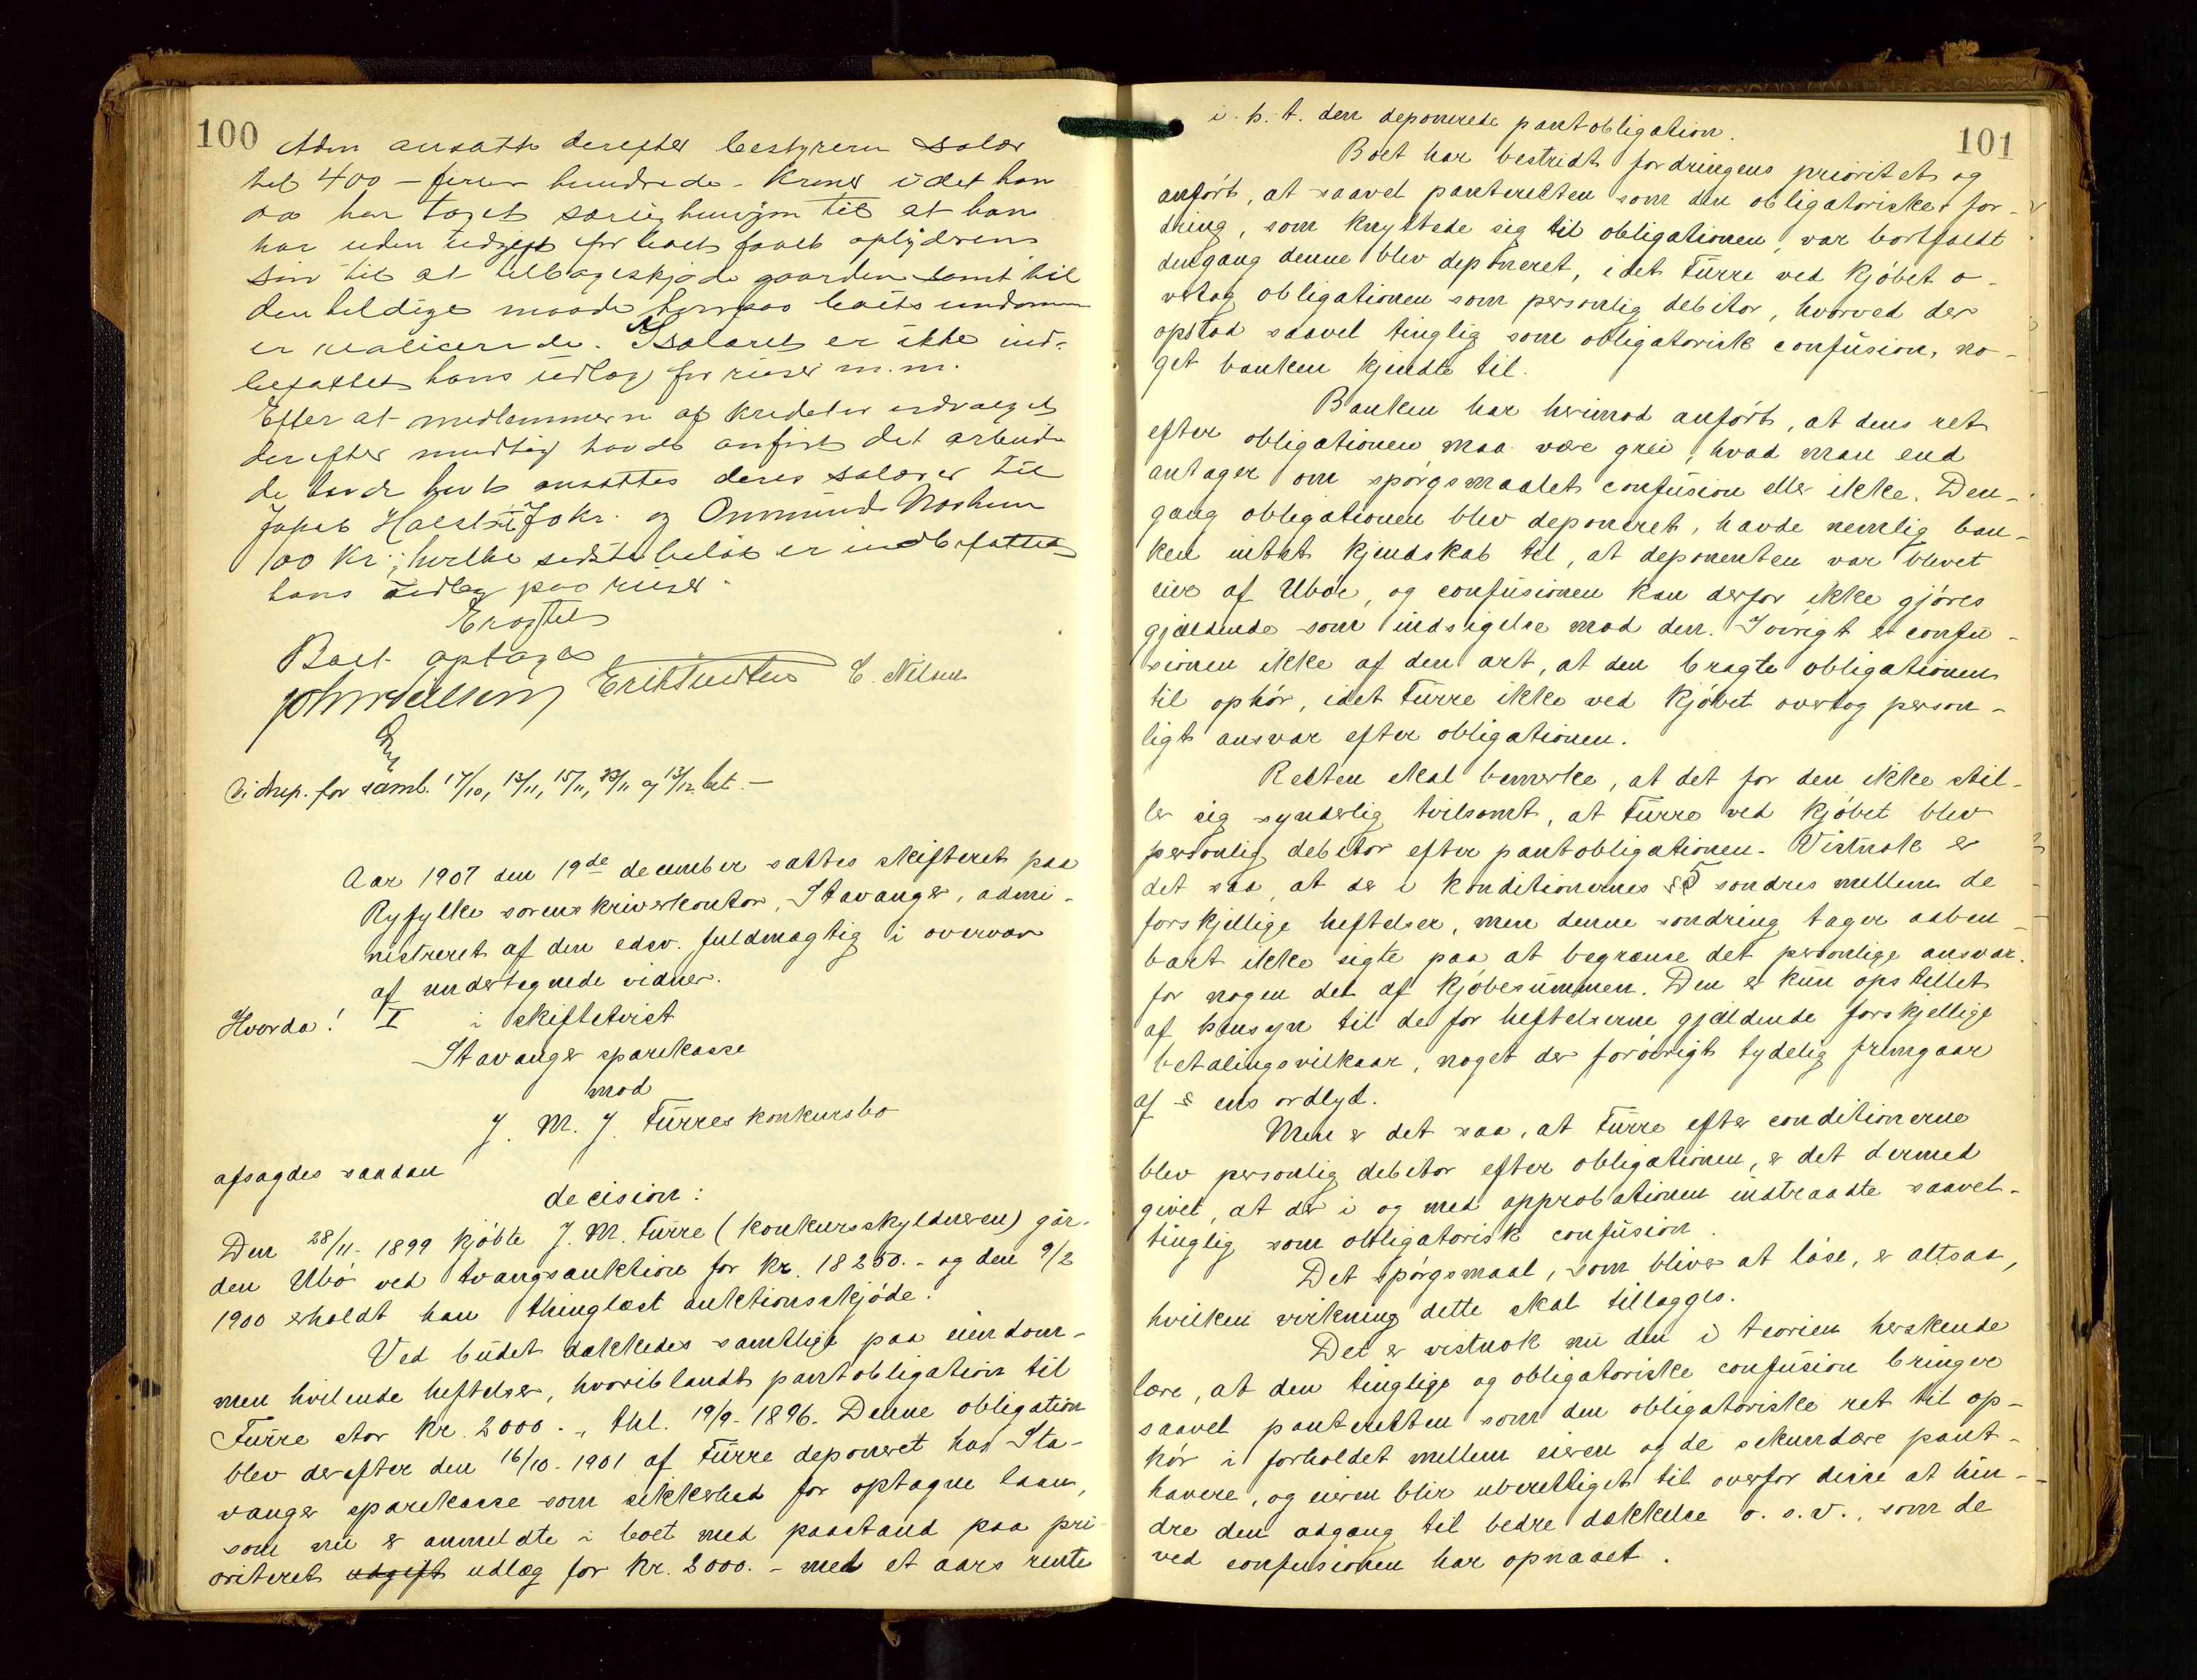 100
Adm ansatte derefter bestyreren salær
til 400 – firer hundrede – kroner idet han
da har taget særlig hensyn til at han
har uden udgift for boet faaet
sin til at tilbageskjøde gaarden samt til
den heldige maade hvorpaa boets
er realiserede. I salæret er ikke ind-
befattet hans udlæg for reiser m.m.
Efter at medlemmerne af kreditorudvalget
derefter mundtlig havde anført det arbeide
de havde havt ansattes deres salærer til
Jakob Halsl til 70 kr. og Ommund
100 kr; hvilke sidste beløb er indbefattet
hans udlæg paa reiser.
Boet optages
E. Nilsen
Vidnep. for samb. 17/10, 13/11, 15/11, 23/11 og 13/12 bet. –
Aar 1907 den 19de december sattes skifteret paa
Ryfylke sorenskriverkontor, Stavanger, admi-
nistreret af den edsv. fuldmægtig i overvær
af undertegnede vidner.
Hvorda! I i skiftetvist
Stavanger sparekasse
mod
J. M. J. Fürres konkursbo
afsagdes saadan
decision:
Den 28/11-1899 kjøbte J. M. Fürre (konkursskyldneren) går-
den Ubø ved tvangsauktion for kr. 18250.- og den 9/2
1900 erholdt han thinglæst auktionsskjøde.
Ved budet dækkedes samtlige paa eiendom-
men hvilende heftelser, hvoriblandt pantobligation til
Fürre stor kr. 2000.-, thl. 19/9-1896. Denne obligation
blev derefter den 16/10-1901 af Fürre deponeret hos Sta-
vanger sparekasse som sikkerhed for optagne laan,
som nu er anmeldte i boet med paastand paa pri-
oriteret udgift udlæg for kr. 2000.- med et aars rente
101
i h. t. den deponerede pantobligation.
Boet har bestridt fordringens prioritet og
anført, at saavel panteretten som den obligatoriske for-
dring, som knyttede sig til obligationen, var bortfaldt
dengang denne blev deponeret, idet Fürre ved kjøbet o-
vertog obligationen som personlig debitor, hvorved der
opstod saavel tinglig som obligatorisk confusion, no-
get banken kjendte til.
Banken har heimod anført, at dens ret
efter obligationen maa være grei, hvad man end
antager om spørgsmaalet confusion eller ikke. Den-
gang obligationen blev deponeret, havde nemlig ban-
ken intet kjendskab til, at deponenten var blevet
eier af Ubøe, og confusionen kan derfor ikke gjøres
gjældende som indsigelse mod den. Iøvrigt er confu-
sionen ikke af den art, at den bragte obligationen
til ophør, idet Fürre ikke ved kjøbet overtog person-
ligt ansvar efter obligationen.
Retten skal bemerke, at det for den ikke stil-
ler sig synderlig tvilsomt, at Fürre ved kjøbet blev
personlig debitor efter pantobligationen. Vistnok er
det saa, at der i konditionernes § 5 sondres mellem de
forskjellige heftelser, men denne sondring tager aaben-
bart ikke sigte paa at begrænse det personlige ansvar
for nogen del af kjøbesummen. Den er kun opstillet
af hensyn til de for heftelserne gjældende forskjellige
betalingsvilkaar, noget der forøvrigt tydelig fremgaar
af § ens ordlyd.
Men er det saa, at Fürre efter conditionerne
blev personlig debitor efter obligationen, er det dermed
givet, at der i og med approbationen indtraadte saavel
tinglig som obligatorisk confusion.
Det spørgsmaal, som bliver at løse, er altsaa,
hvilken virkning dette skal tillægges.
Det er vistnok nu den i teorien herskende
lære, at den tinglige og obligatoriske confusion bringer
saavel panteretten som den obligatoriske ret til op-
hør i forholdet mellem eieren og de sekundære pant-
havere, og eieren blir uberettiget til overfor disse at hin-
dre den adgang til bedre dækkelse o. s. v., som de
ved confusionen har opnaaet.